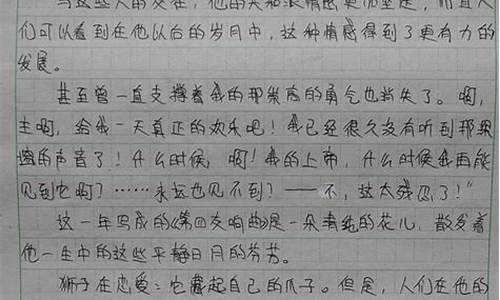 与这些人的交往，他的共和派情感更加坚定，而且人
们可以看到在他以后的岁月中，这种情感得到了更有力的
发展。
甚至曾一直支撑着我的那崇高的勇气也消失了。啊，
主啊，给我一天真正的欢乐吧！我已经很久没有听到那欢
乐的声音了！什么时候，啊！我的上帝，什么时候我再能
见到它啊？……永远也见不到？——不，这太残忍了！”
这一年写成的《第四交响曲》是一朵清纯的花儿，散发着
他一生中的这些平静日月的芬芳。
狮子在恋爱：它藏起自己的爪子。但是，人们在他的